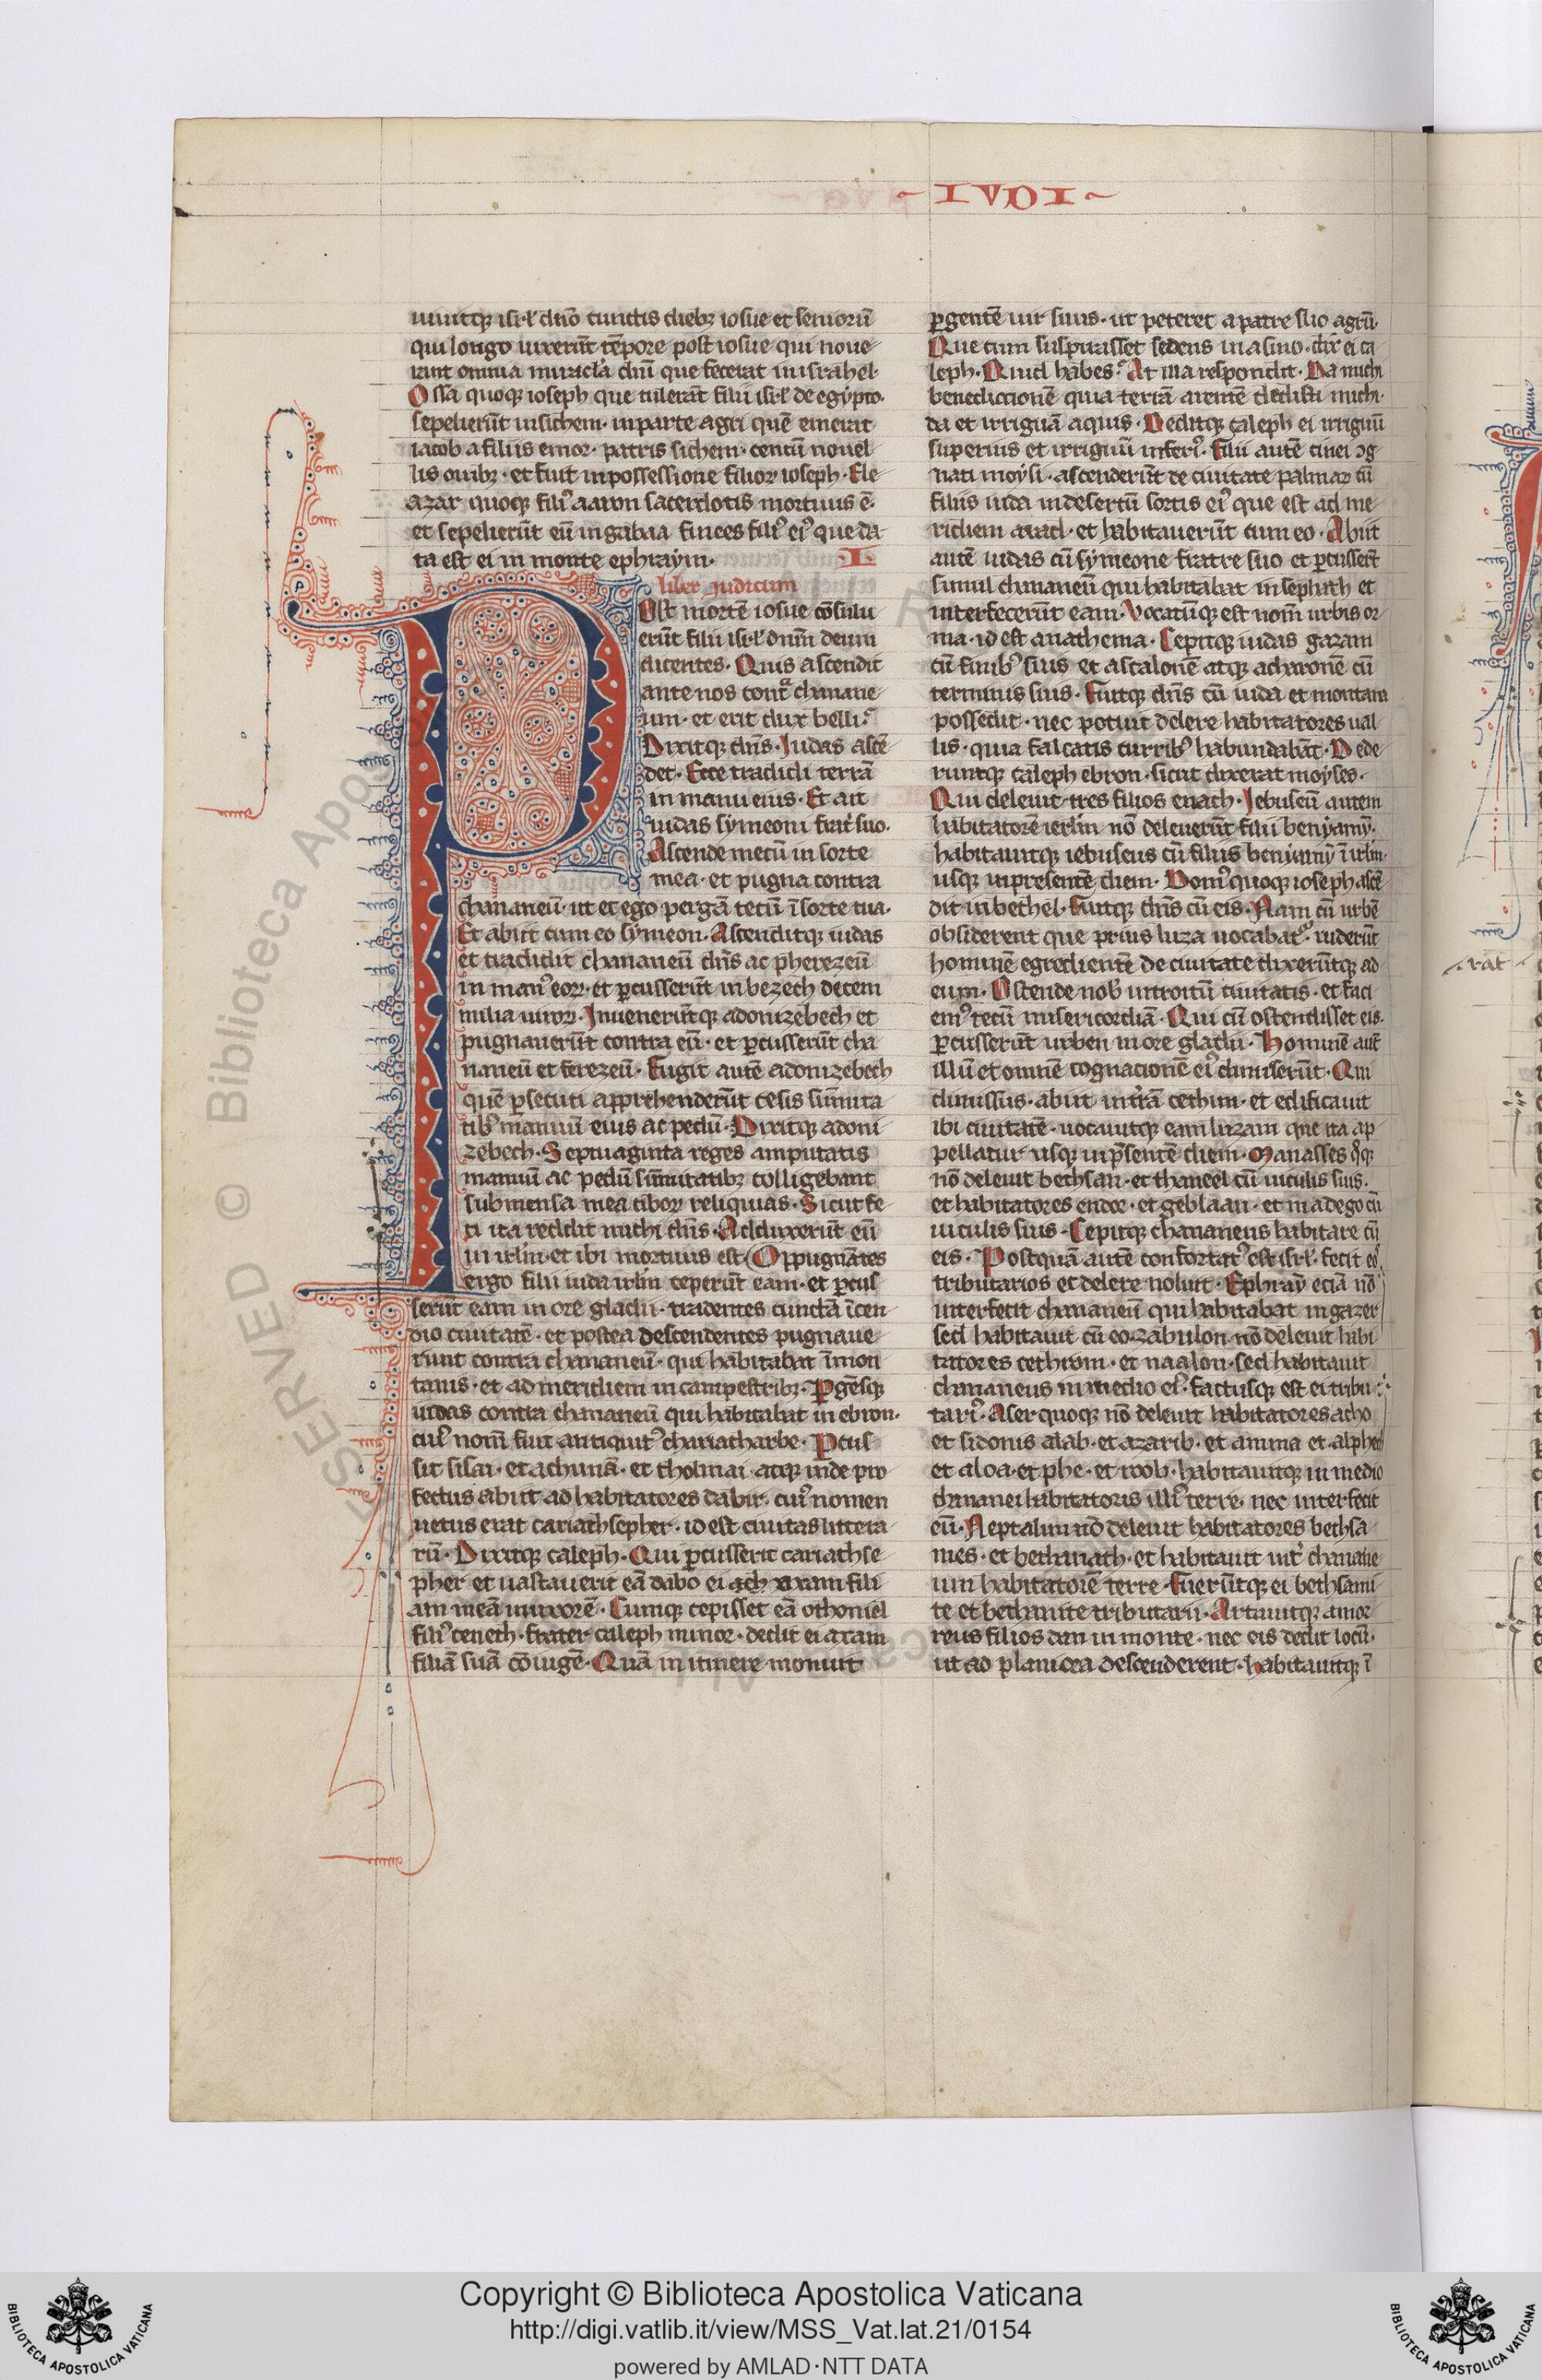 IVDI
uiuitq; isrl' dn̄o cunctis dieb; iosue et senioꝝ
qui longo uixerūt tēpore post iosue qui noue
rant omnia miracl'a dnī que fecerat in israhel·
Ossa quoq; ioseph que tulerāt filii isrl' de egypto·
sepelierūt in sichem· in parte agri quē emerat
iacob a filiis emor· patris sichem· centū nouel
lis ouib;· et fuit in possessione filioꝝ ioseph· Ele
azar quoq; fili' aaron sacerdotis mortuus ē·
et sepelierūt eū in gabaa finees fili' ei' que da
ta est ei in monte ephraym· I
liber Judicum
Post mortē iosue cōsulu
erūt filii isrl' dnm̄ deum
dicentes· Quis ascendit
ante nos contͣ chanane
um· et erit dux belli·
Dixitq; dn̄s· Iudas ascē
det· Ecce tradidi terrā
in manu eius· Et ait
iudas symeoni frat̄ suo·
Ascende mecū in sorte
mea· et pugna contra
chananeū· ut et ego pergā tecū ī sorte tua·
Et abiit cum eo symeon· Ascenditq; iudas
et tradidit chananeū dn̄s ac pherezeū
in man' eoꝝ· et ꝑcusserūt in bezech decem
milia uiroꝝ· Inuenerūtq; adonizebech et
pugnauerūt contra eū· et ꝑcusserūt cha
naneū et ferezeū· Fugit autē adonizebech
quē ꝑsecuti apprehenderūt cesis sūmita
tib' manuū eius ac pedū· Dixitq; adoni
zebech· Septuaginta reges amputatis
manuū ac pedū sūmitatib; colligebant
sub mensa mea ciboꝝ reliquias· Sicut fe
ci ita reddit michi dn̄s· Adduxerūt eū
in irlm̄· et ibi mortuus est· Oppugnātes
ergo filii iuda irlm̄ ceperūt eam· et ꝑcus
serūt eam in ore gladii· tradentes cunctā īcen
dio ciuitatē· et postea descendentes pugnaue
runt contra chananeū· qui habitabat ī mon
tanis· et ad meridiem in campestrib;· Ꝑgēsq;
iudas contra chananeū qui habitabat in ebron·
cui' nom̄ fuit antiquit' chariatharbe· Ꝑcus
sit sisai· et achimā· et tholmai· atq; inde pro
fectus abiit ad habitatores dabir· cui' nomen
uetus erat cariathsepher· id est ciuitas littera
rū· Dixitq; caleph· Qui ꝑcusserit cariathse
pher et uastauerit eā dabo ei ach axam fili
am meā in uxorē· Cumq; cepisset eā othoniel
fili' ceneth· frater caleph minor· dedit ei axam
filiā suā cōiugē· Quā in itinere monuit
ꝑgentē uir suus· ut peteret a patre suo agrū·
Que cum suspirasset sedens in asino· dix̄ ei ca
leph· Quid habes· At illa respondit· Da michi
benedictionē quia terrā arentē dedisti michi·
da et irriguā aquis· Deditq; caleph ei irriguū
superius et irriguū inferi'· Filii autē cinei ꝯg
nati moysi· ascenderūt de ciuitate palmaꝝ cū
filiis iuda in desertū sortis ei' que est ad me
ridiem arad· et habitauerūt cum eo· Abiit
autē iudas cū symeone fratre suo et ꝑcusser̄t
simul chananeū qui habitabat in sephath et
interfecerūt eam· Vocatūq; est nom̄ urbis or
ma· id est anathema· Cepitq; iudas gazam
cū finib' suis et ascalonē atq; acharonē cū
terminis suis· Fuitq; dn̄s cū iuda et montana
possedit· nec potuit delere habitatores ual
lis· quia falcatis currib' habundabāt· Dede
runtq; caleph ebron· sicut dixerat moyses·
Qui deleuit tres filios enach· Iebuseū autem
habitatorē ierl'm nō deleuerūt filii benyamȳ·
habitauitq; iebuseus cū filiis benyamȳ ī irlm̄·
usq; in presentē diem· Dom' quoq; ioseph ascē
dit in bethel· fuitq; dn̄s cū eis· Nam cū urbē
obsiderent que prius luza uocabat'· uiderūt
hominē egredientē de ciuitate dixerūtq; ad
eum· Ostende nob' introitū ciuitatis· et faci
em' tecū misericordiā· Qui cū ostendisset eis·
ꝑcusserūt urbem in ore gladii· Hominē aut̄
illū et omnē cognacionē ei' dimiserūt· Qui
dimissus· abiit in t̄rā cethim· et edificauit
ibi ciuitatē· uocauitq; eam luzam que ita ap
pellatur usq; in p̄sentē diem· Manasses qͦq;
nō deleuit bethsan· et thaneel cū uiculis suis·
et habitatores endor· et geblaan· et madego cū
uiculis suis· Cepitq; chananeus habitare cū
eis· Postquā autē confortat' est isrl'· fecit eos
tributarios et delere noluit· Ephraȳ eciā nō
interfecit chananeū qui habitabat in gazer
sed habitauit cū eo· zabulon nō deleuit habi
tatores cethrom· et naalon· sed habitauit
chananeus in medio ei'· factusq; est ei tribu
tari'· Aser quoq; nō deleuit habitatores acho
et sidonis alab· et azarib· et amma et alphec
et aloa· et phe· et roob· habitauitq; in medio
chananei habitatoris illi' terre· nec interfecit
eū· Neptalim nō deleuit habitatores bethsa
mes· et bethanath· et habitauit int̄ chanane
um habitatorē terre· Fuerūtq; ei bethsami
te et bethanite tributarii· Artauitq; amor
reus filios dan in monte· nec eis dedit locū·
ut ad planiora descenderent· habitauitq; ī
rat
© Biblioteca Apos
SERVED
Copyright © Biblioteca Apostolica Vaticana
http://digi.vatlib.it/view/MSS_Vat.lat.21/0154
powered by AMLAD·NTT DATA
BIBLIOTECA APOSTOLICA VATICANA
BIBLIOTECA APOSTOLICA VATICANA